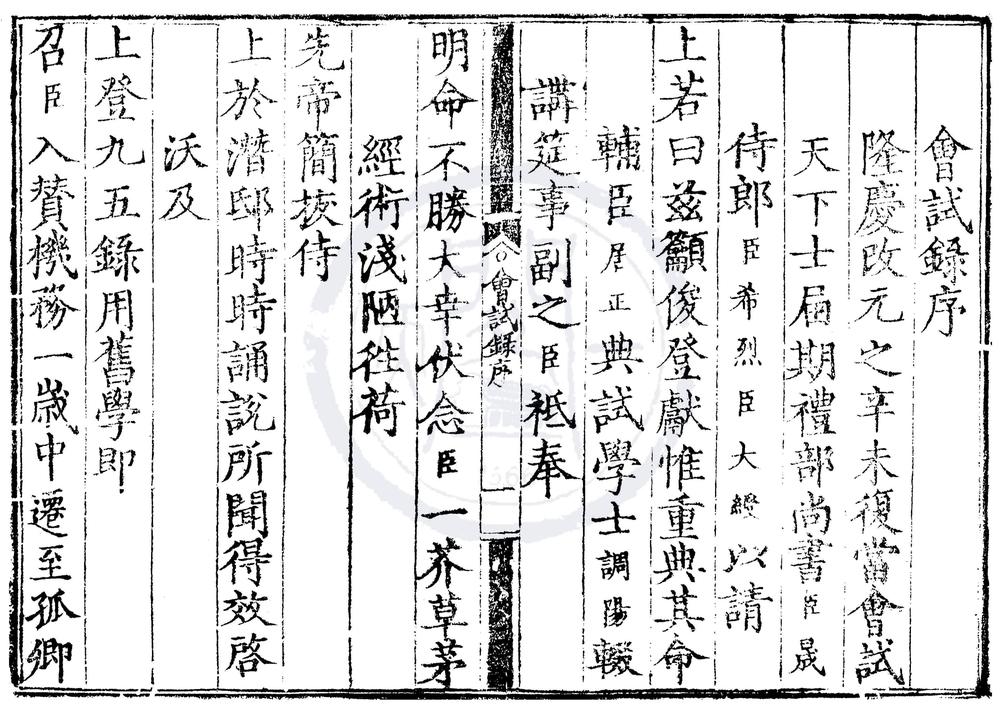 會試錄序
隆慶改元之辛未復當會試
天下士屆期禮部尚書臣晟
侍郎臣希烈臣大綬以請
上若曰茲籲俊登獻惟重典其命
輔臣居正典試學士調陽輟
講筵事副之臣祗奉
會試錄序
一
明命不勝大幸伏念臣一芥草茅
經術淺陋徃荷
先帝簡拔侍
上於潛邸時時誦說所聞得效啓
沃及
上登九五錄用舊學即
召臣入贊機務一歲中遷至孤卿